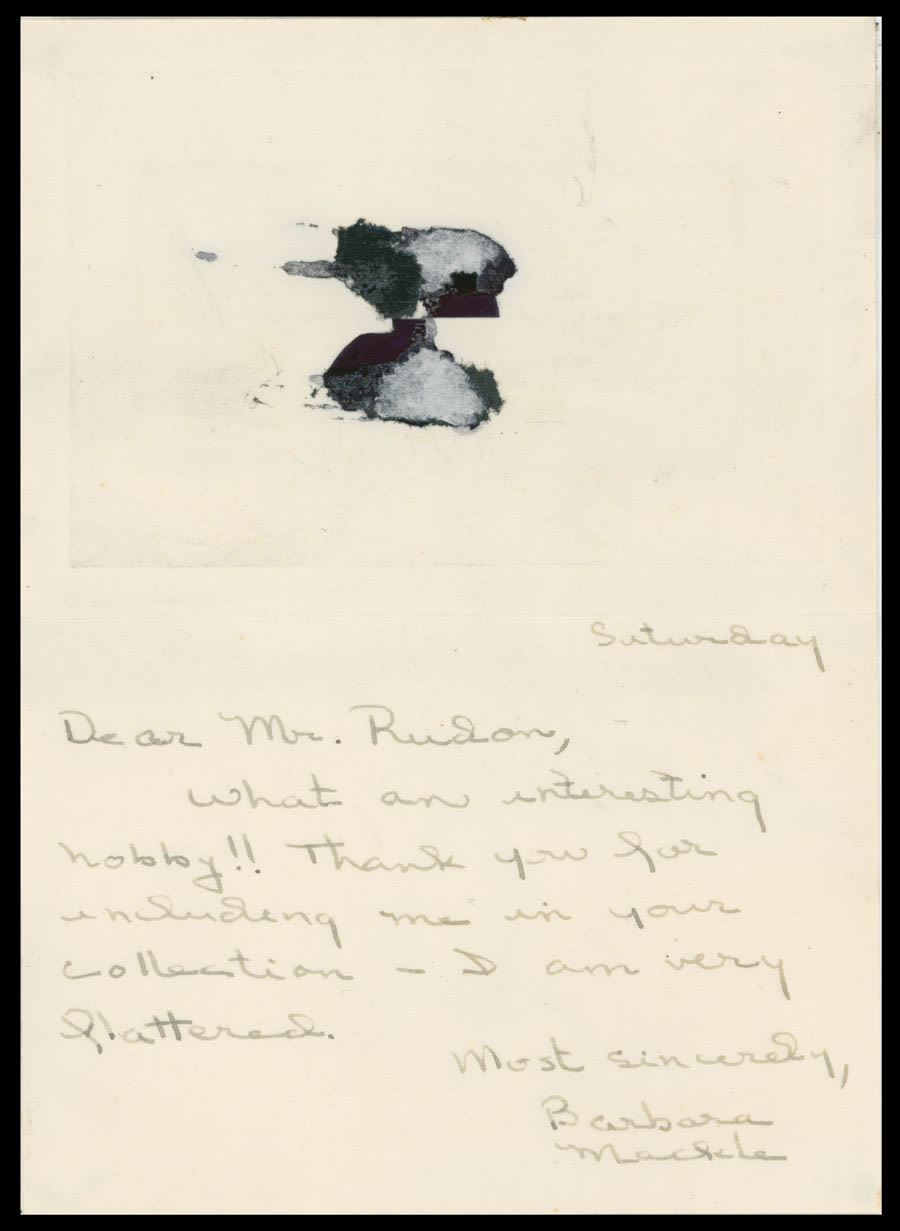 Saturday
Dear Mr. Rudon,
What an interesting
hobby!! Thank you for
including me in your
collection – I am very
flattered.
Most sincerely,
Barbara
Mackle